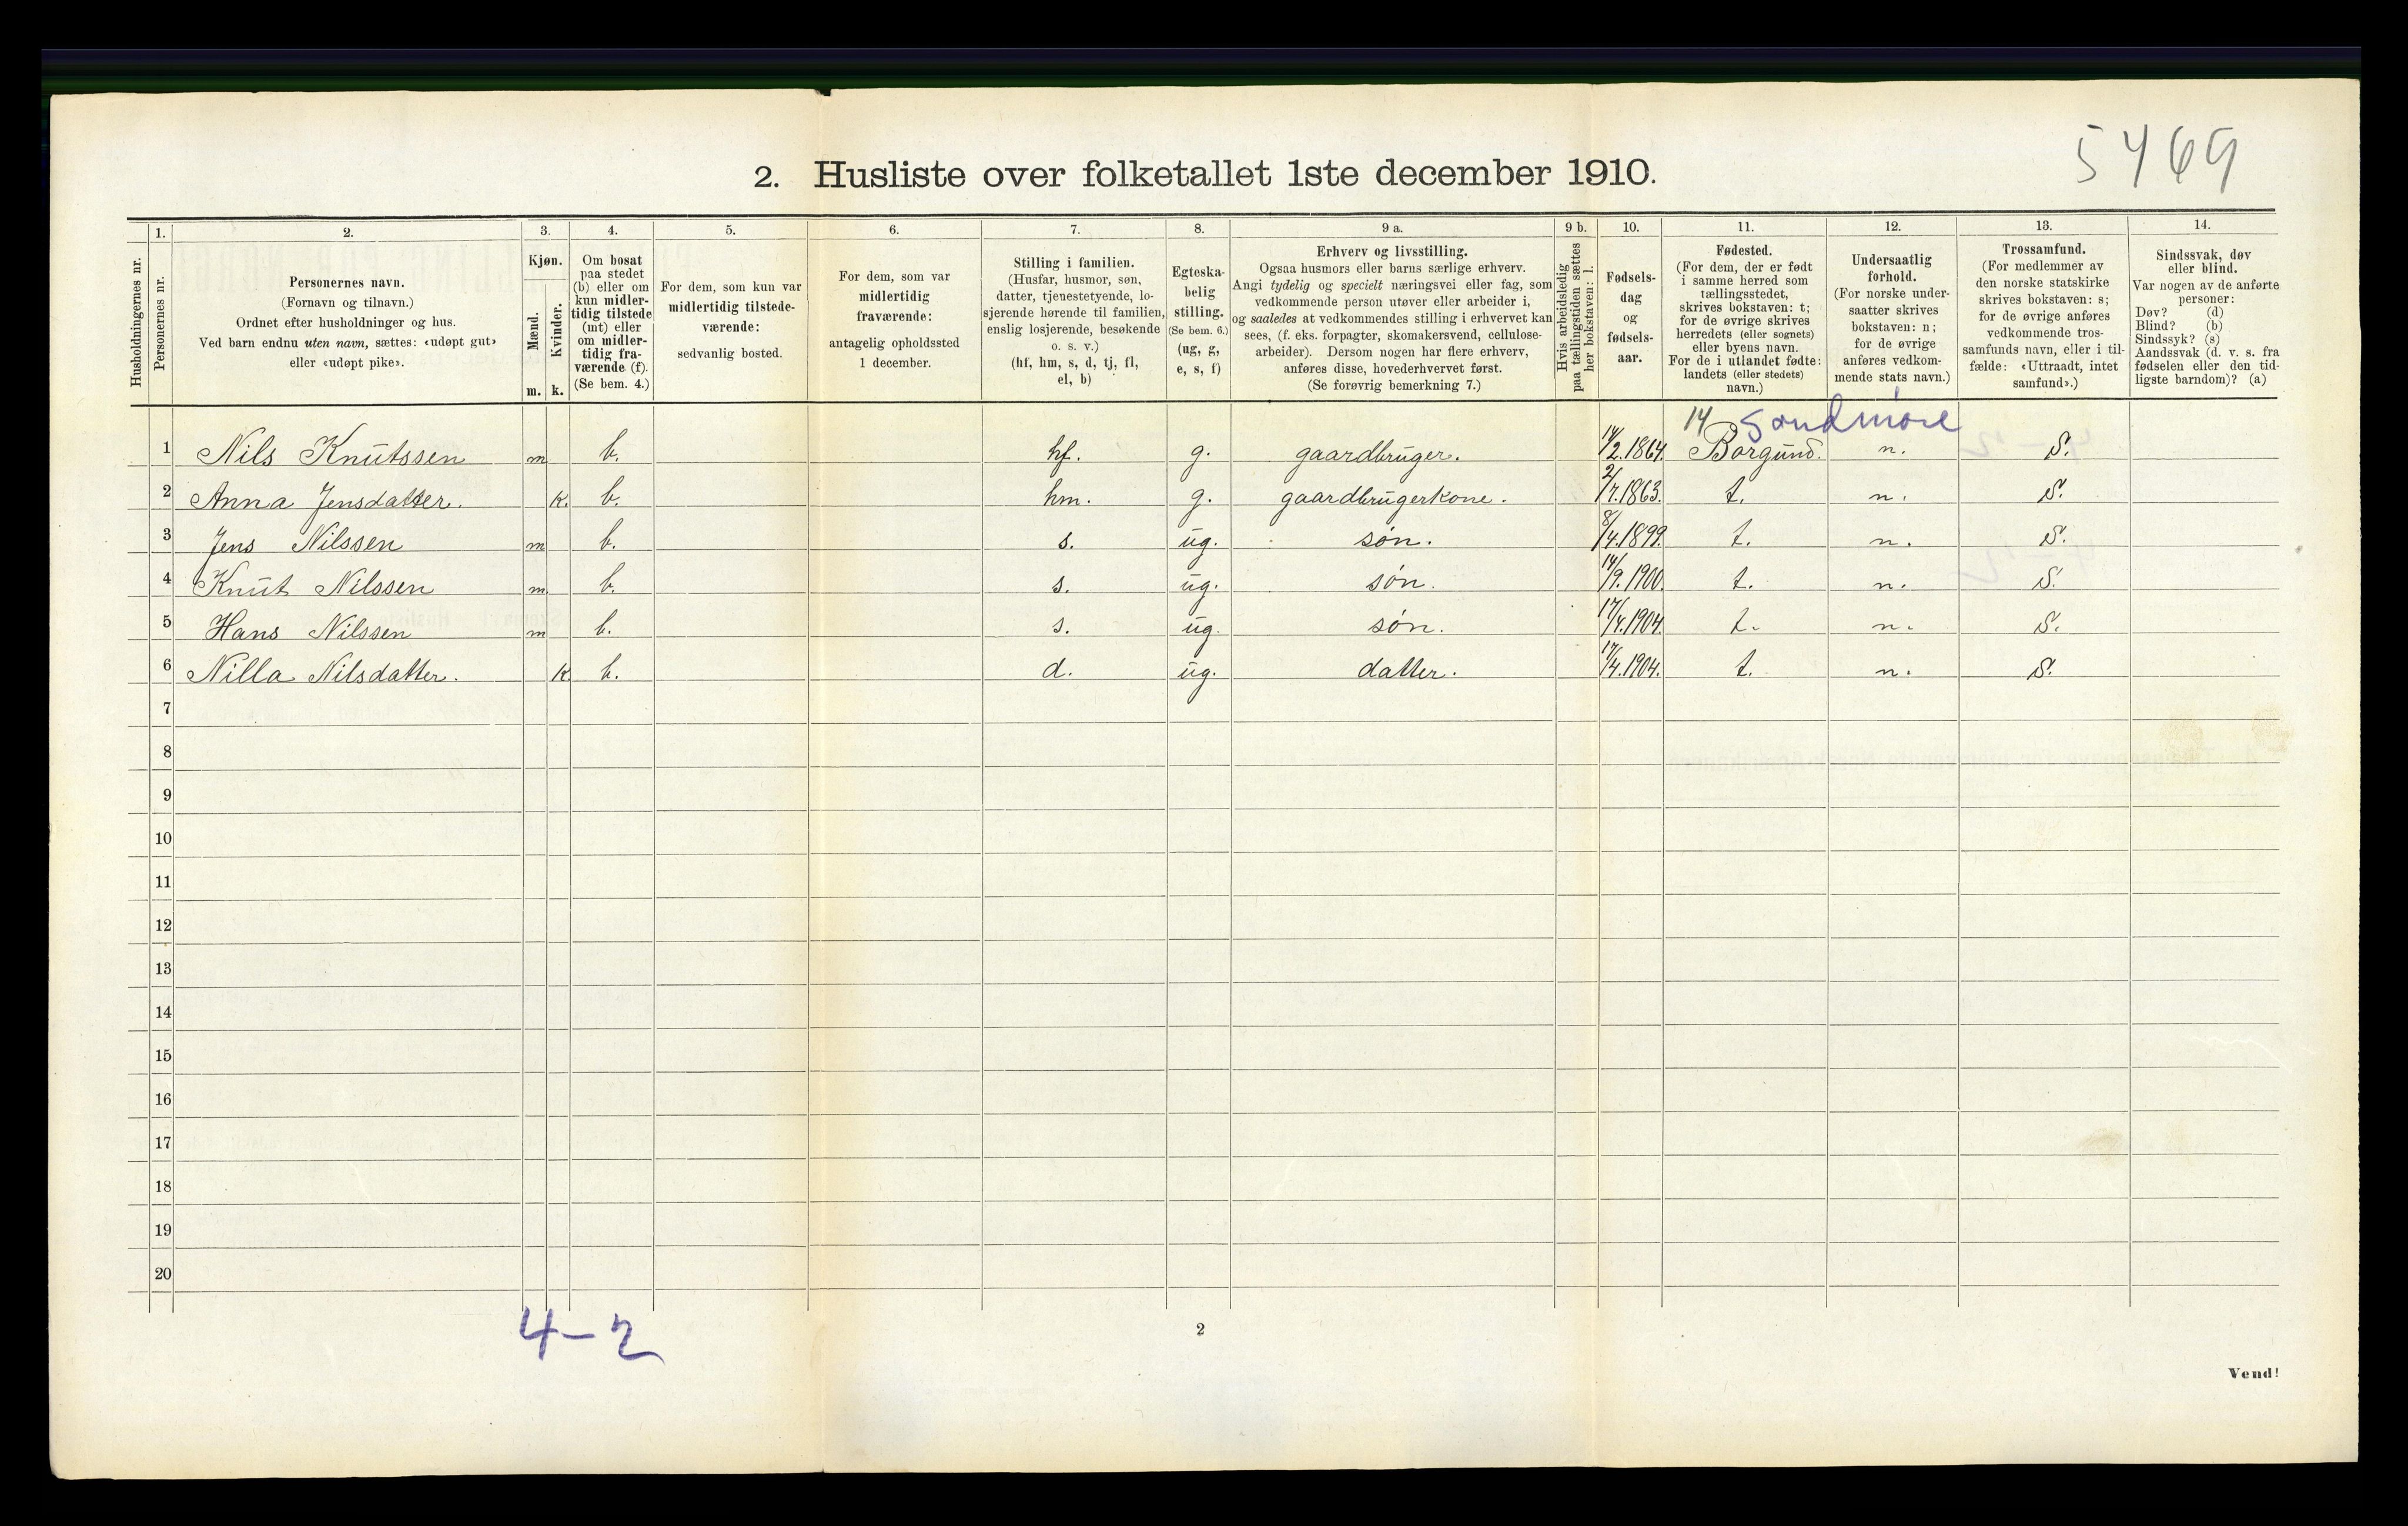 5469
2. Husliste over folketallet 1ste december 1910.
Husholdningernes nr.
1.
Personernes nr.
2.
Personernes navn.
(Fornavn og tilnavn.)
Ordnet efter husholdninger og hus.
Ved barn endnu uten navn, sættes: «udøpt gut»
eller «udøpt pike».
3.
Kjøn.
Mænd.
Kvinder.
m. k.
4.
Om bosat
paa stedet
(b) eller om
kun midler-
tidig tilstede
(mt) eller
om midler-
tidig fra-
værende (f).
(Se bem. 4.)
5.
For dem, som kun var
midlertidig tilstede-
værende:
sedvanlig bosted.
6.
For dem, som var
midlertidig
fraværende:
antagelig opholdssted
1 december.
7.
Stilling i familien.
(Husfar, husmor, søn,
datter, tjenestetyende, lo-
sjerende hørende til familien,
enslig losjerende, besøkende
o. s. v.)
(hf, hm, s, d, tj, fl,
el, b)
8.
Egteska-
belig
stilling.
(Se bem. 6.)
(ug, g,
e, s, f)
9 a.
Erhverv og livsstilling.
Ogsaa husmors eller barns særlige erhverv.
Angi tydelig og specielt næringsvei eller fag, som
vedkommende person utøver eller arbeider i,
og saaledes at vedkommendes stilling i erhvervet kan
sees, (f. eks. forpagter, skomakersvend, cellulose-
arbeider). Dersom nogen har flere erhverv,
anføres disse, hovederhvervet først.
(Se forøvrig bemerkning 7.)
9 b.
Hvis arbeidsledig
paa tællingstiden sættes
her bokstaven: l.
10.
Fødsels-
dag
og
fødsels-
aar.
11.
Fødested.
(For dem, der er født
i samme herred som
tællingsstedet,
skrives bokstaven: t;
for de øvrige skrives
herredets (eller sognets)
eller byens navn.
For de i utlandet fødte:
landets (eller stedets)
navn.)
12.
Undersaatlig
forhold.
(For norske under-
saatter skrives
bokstaven: n;
for de øvrige
anføres vedkom-
mende stats navn.)
13.
Trossamfund.
(For medlemmer av
den norske statskirke
skrives bokstaven: s;
for de øvrige anføres
vedkommende tros-
samfunds navn, eller i til-
fælde: «Uttraadt, intet
samfund».)
14.
Sindssvak, døv
eller blind.
Var nogen av de anførte
personer:
Døv? (d)
Blind? (b)
Sindssyk? (s)
Aandssvak (d. v. s. fra
fødselen eller den tid-
ligste barndom)? (a)
14 Søndmøre
1 Nils Knutssen m b. hf. g. gaardbruger. 14/2.1864. Borgund. n. S.
2 Anna Jensdatter. k. b. hm. g. gaardbrugerkone. 2/7.1863. t. n. S.
3 Jens Nilssen m b. s. ug. søn. 8/4.1899. t. n. S.
4 Knut Nilssen m b. s. ug. søn. 14/9.1900. t. n. S.
5 Hans Nilssen m b. s. ug. søn. 17/4.1904. t. n. S.
6 Nilla Nilsdatter. k b. d. ug. datter. 17/4.1904. t. n. S.
7
8
9
10
11
12
13
14
15
16
17
18
19
20
4-2
2
Vend!